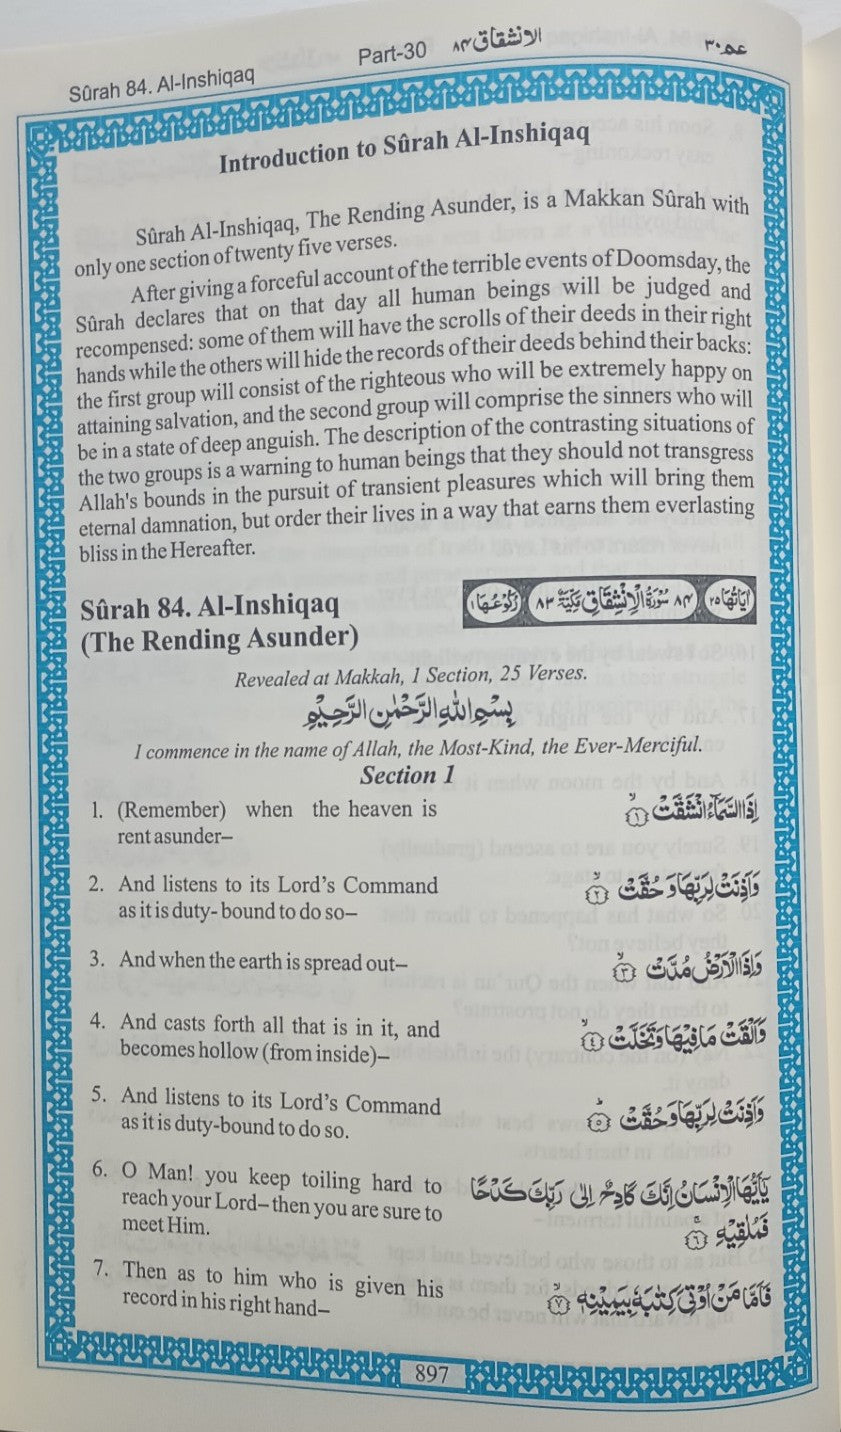 Sûrah 84. Al-Inshiqaq Part-30 الانشقاق ٨٤ عم ٣٠
Introduction to Sûrah Al-Inshiqaq
Sûrah Al-Inshiqaq, The Rending Asunder, is a Makkan Sûrah with
only one section of twenty five verses.
After giving a forceful account of the terrible events of Doomsday, the
Sûrah declares that on that day all human beings will be judged and
recompensed: some of them will have the scrolls of their deeds in their right
hands while the others will hide the records of their deeds behind their backs:
the first group will consist of the righteous who will be extremely happy on
attaining salvation, and the second group will comprise the sinners who will
be in a state of deep anguish. The description of the contrasting situations of
the two groups is a warning to human beings that they should not transgress
Allah's bounds in the pursuit of transient pleasures which will bring them
eternal damnation, but order their lives in a way that earns them everlasting
bliss in the Hereafter.
Sûrah 84. Al-Inshiqaq
(The Rending Asunder)
اٰيَاتُهَا ٢٥ ٨٤ سُوْرَةُ الْاِنْشِقَاقِ مَكِّيَّةٌ ٨٣ رُكُوْعُهَا ١
Revealed at Makkah, 1 Section, 25 Verses.
بِسْمِ اللّٰهِ الرَّحْمٰنِ الرَّحِيْمِ
I commence in the name of Allah, the Most-Kind, the Ever-Merciful.
Section 1
1. (Remember) when the heaven is
rent asunder–
اِذَا السَّمَآءُ انْشَقَّتْ ۙ﴿١﴾
2. And listens to its Lord's Command
as it is duty- bound to do so–
وَاَذِنَتْ لِرَبِّهَا وَحُقَّتْ ۙ﴿٢﴾
3. And when the earth is spread out–
وَاِذَا الْاَرْضُ مُدَّتْ ۙ﴿٣﴾
4. And casts forth all that is in it, and
becomes hollow (from inside)–
وَاَلْقَتْ مَا فِيْهَا وَتَخَلَّتْ ۙ﴿٤﴾
5. And listens to its Lord's Command
as it is duty-bound to do so.
وَاَذِنَتْ لِرَبِّهَا وَحُقَّتْ ؕ﴿٥﴾
6. O Man! you keep toiling hard to
reach your Lord– then you are sure to
meet Him.
يٰۤاَيُّهَا الْاِنْسَانُ اِنَّكَ كَادِحٌ اِلٰى رَبِّكَ كَدْحًا
فَمُلٰقِيْهِ ۚ﴿٦﴾
7. Then as to him who is given his
record in his right hand–
فَاَمَّا مَنْ اُوْتِيَ كِتٰبَهٗ بِيَمِيْنِهٖ ۙ﴿٧﴾
897